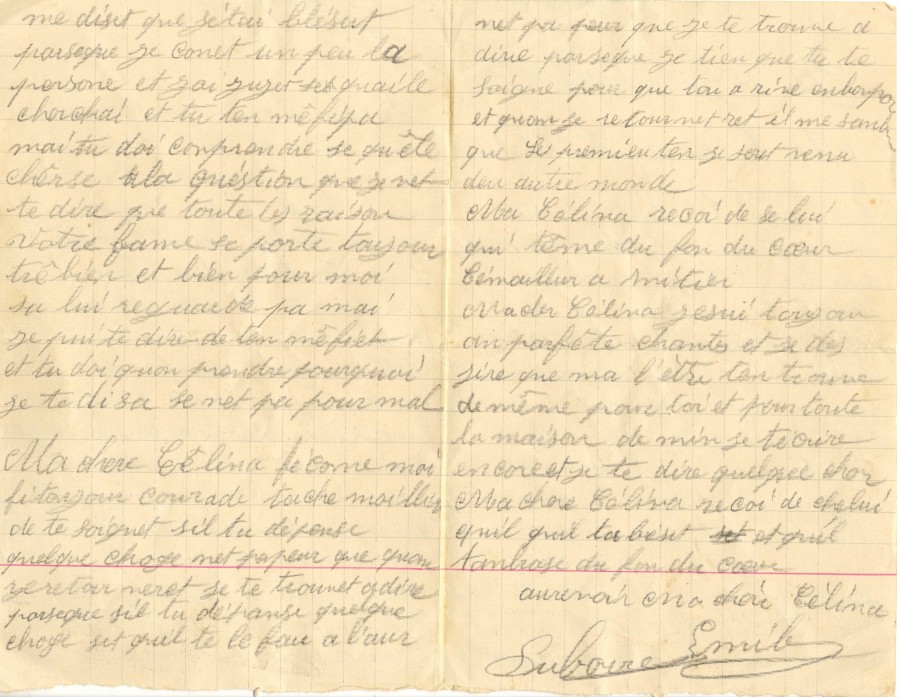 me disit que sétai blésut
parseque ze conet un peu la
persone et zai zuzet set quaile
cherchai et tu ten mêfipa
mai tu doi conprendre se qu'ête
chèrse à la quéstion que ze vet
te dire que toute les raison
Votre fame se porte toujour
trêbien et bien pour moi
sa lui reguarde pa mai
ze pui te dire de ten mêfiet
et tu doi quon prendre pourquoi
ze te di sa se net pa pour mal
Ma chere Célina fè come moi
fi toujour courade tache moillien
de te soignet sil tu dépense
quelque choge net pa peur que quan
ze retourneret se te trounet a dire
parseque sil tu dépanse quelque
choge set quil te le fau a l'aur
net pa peur que ze te trouve a
dire parseque ze tien que tu te
soigne pour que ton a rive enbonpor
et quan ze retournet ret il me sanb
que les premieu ten ze sout venu
deu autre monde
Ma Célina recoi de se lui
qui têmè du fon du cœur
Mader Célina ze sui toujour
an parfête chantes et ze dés
zire que ma l'être ten trouve
de même pour toi et pour toute
la maison de min ze técrire
encore et ze te dire quelque chos
Ma chere Célina recoi de chelui
quil quil ta béset et quil
tanbrase du fon du cœur
aurevoir Ma chère Célina
Emile